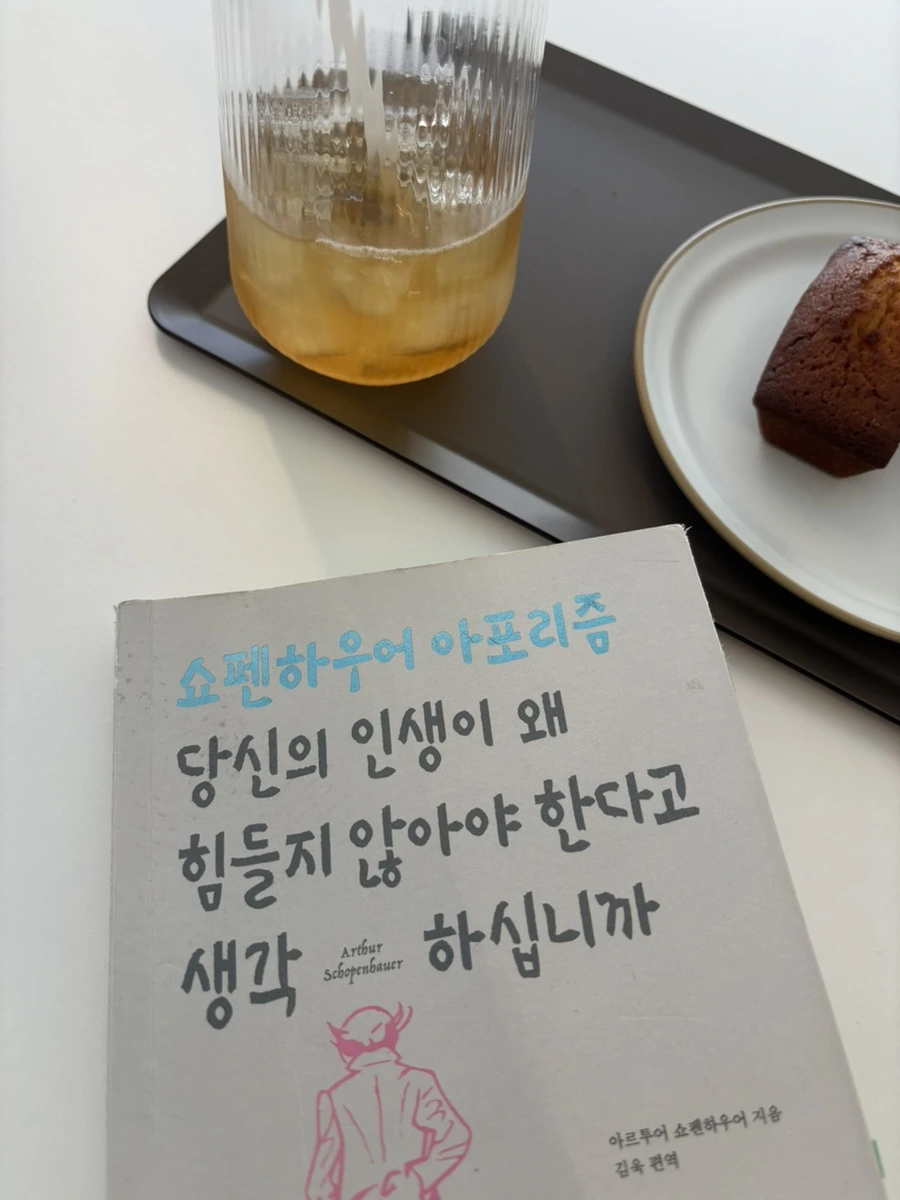 쇼펜하우어 아포리즘
당신의 인생이 왜
힘들지 않아야 한다고
생각 하십니까
Arthur
Schopenhauer
아르투어 쇼펜하우어 지음
김욱 편역